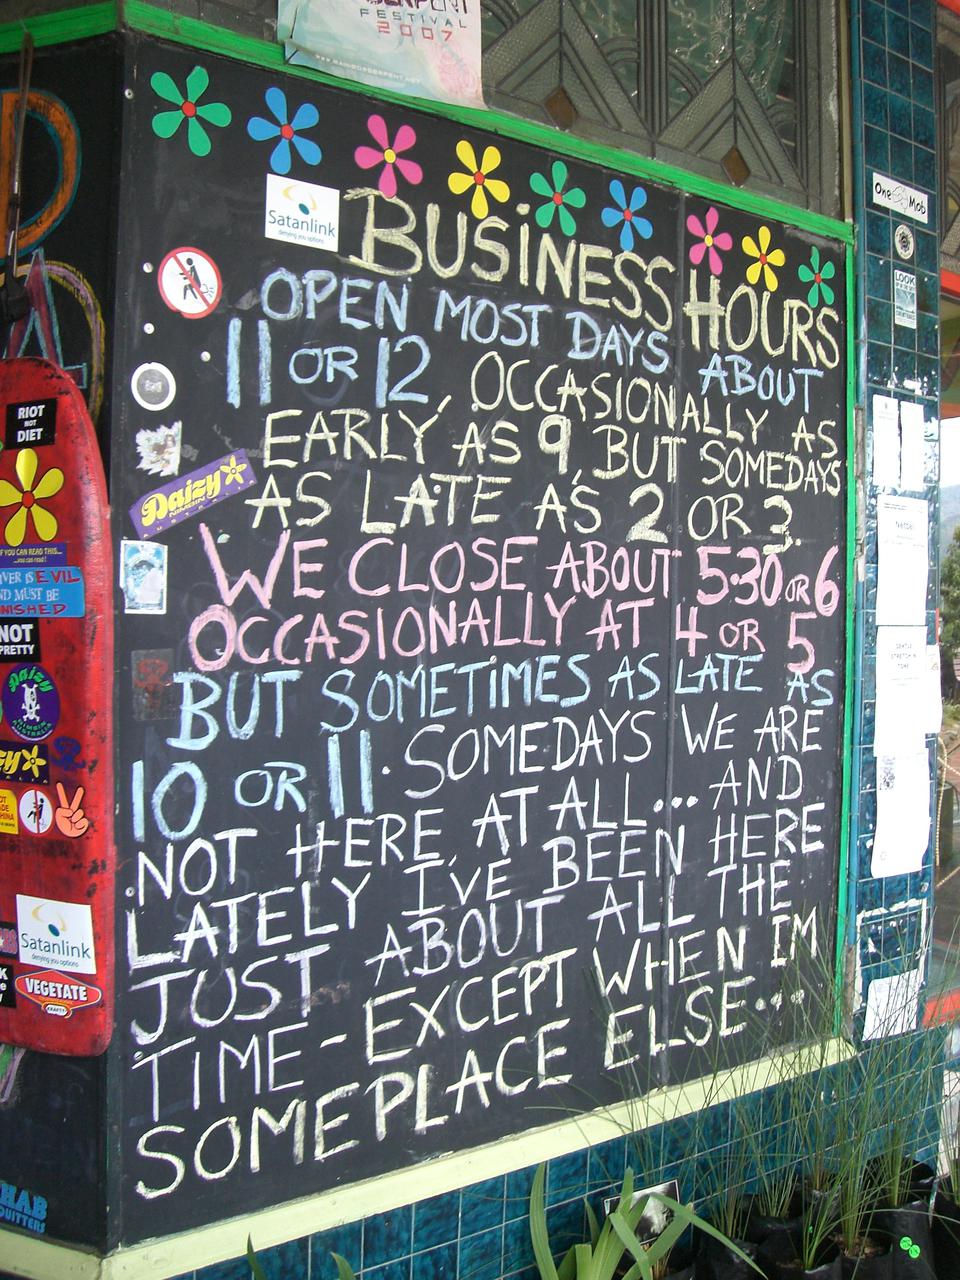 SERPENT
FESTIVAL
2007
Satanlink
denying you options
BUSINESS HOURS
OPEN MOST DAYS ABOUT
11 OR 12, OCCASIONALLY AS
EARLY AS 9, BUT SOMEDAYS
AS LATE AS 2 OR 3.
WE CLOSE ABOUT 5.30 OR 6
OCCASIONALLY AT 4 OR 5
BUT SOMETIMES AS LATE AS
10 OR 11. SOMEDAYS WE ARE
NOT HERE AT ALL... AND
LATELY I'VE BEEN HERE
JUST ABOUT ALL THE
TIME - EXCEPT WHEN IM
SOMEPLACE ELSE...
Daizy
NIMBIN
One Mob
LOOK
RIOT
NOT
DIET
IF YOU CAN READ THIS...
EVIL
AND MUST BE
NOT
PRETTY
Daizy
Satanlink
denying you options
VEGETATE
KRAFTY
QUITTERS